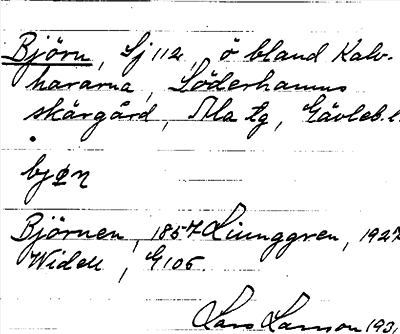 Björn, Sj 112, ö bland Kalv-
hararna, Söderhamns
skärgård, Ala tg, Gävleb. l.
Björnen, 1857 Ljunggren, 1927
Widell, G 106.
Lars Larson 193